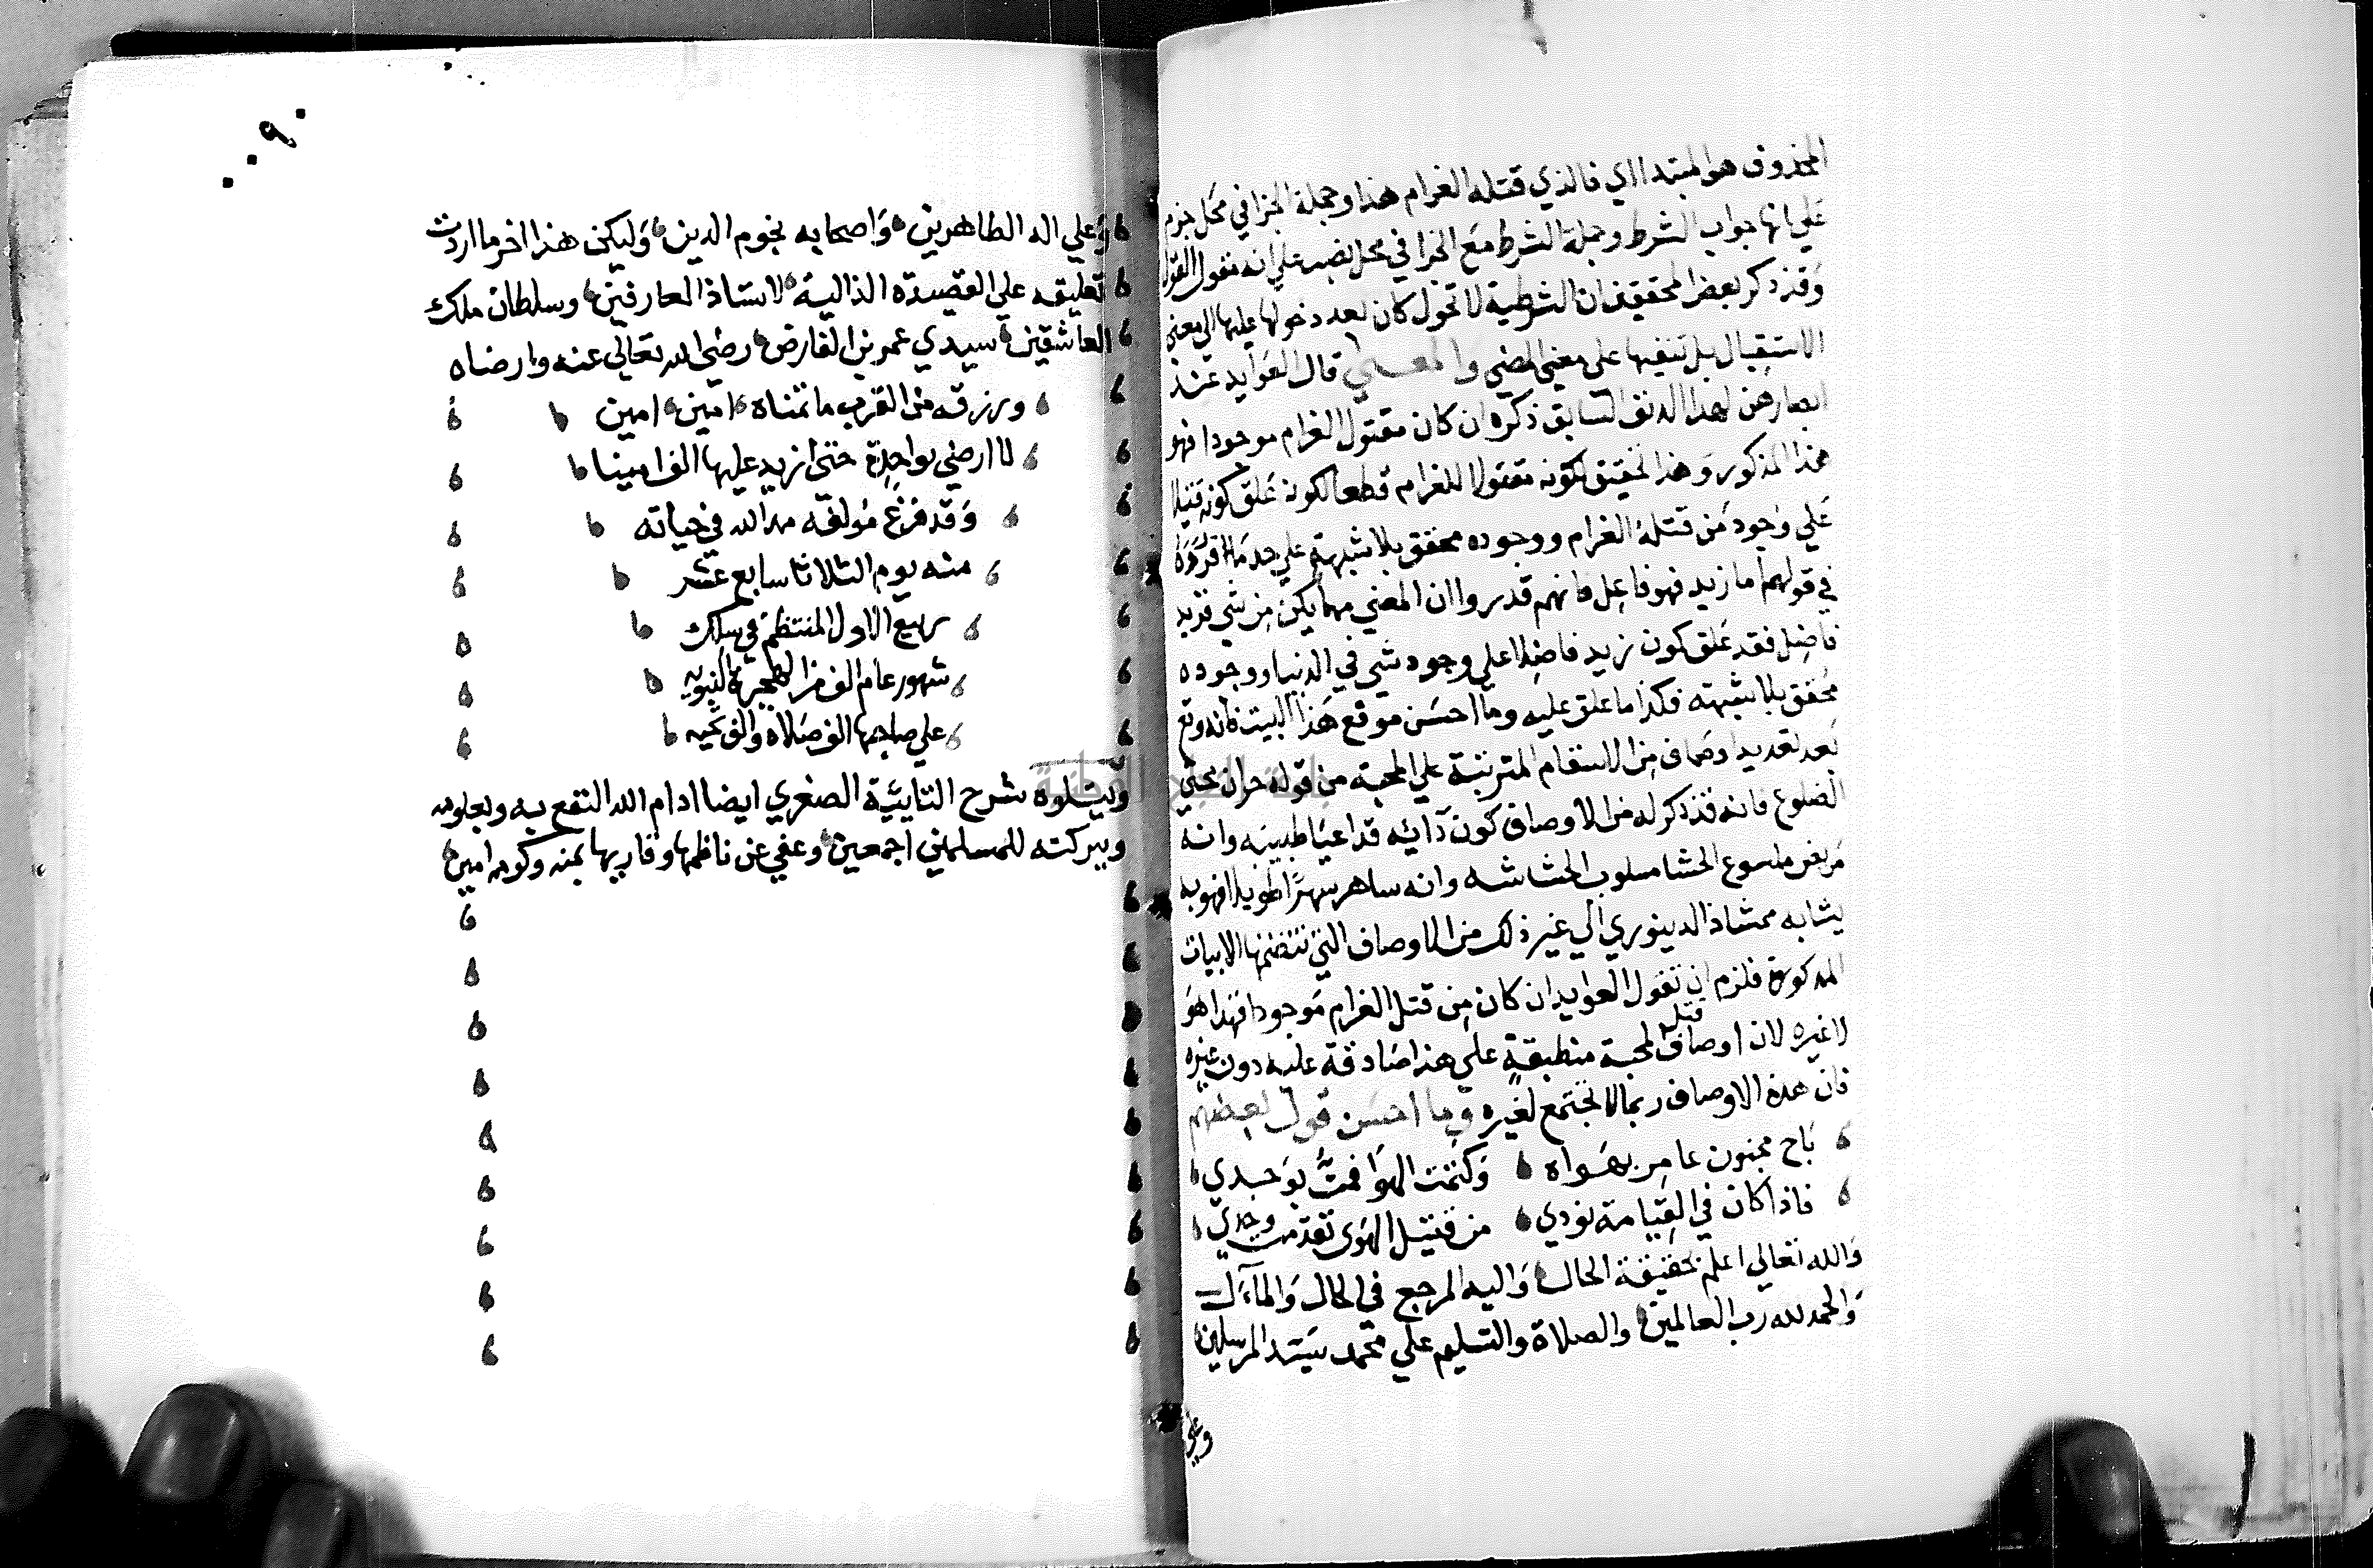 المحذوف هو المبتدا اي فالذي قتله الغرام هذا وجملة الجزا في محل جزم
علي انها جواب الشرط وجملة الشرط مع الجزا في محل نصب علي انه مقول القول
وقد ذكر بعض المحققين ان الشرطية لا تحول كان بعد دخولها عليها الي معني
الاستقبال بل تبقيها علي معني المضي والمعــني قال العوايد عند
ابصارهن لهذا الدنف السابق ذكره ان كان مقتول الغرام موجودا فهو
هذا المذكور وهذا تحقيق لكونه مقتولا للغرام قطعا لكونه علق كونه قتيلا
علي وجود من قتله الغرام ووجوده محقق بلا شبهة علي حد ما قرروه
في قولهم اما زيد فهو فاعل فانهم قدروا ان المعني مهما يكن من شي فزيد
فاضل فقد علق كون زيد فاضلا علي وجود شي في الدنيا ووجوده
محقق بلا شبهته فكذا ما علق عليه وما احسن موقع هذا البيت فانه وقع
بعد تعديد اوصاف من الاسقام المترتبة علي المحبة من قوله حران محني
الضلوع فانه قد ذكر له من الاوصاف كون دائه قد اعيا طبيبه وانه
مريض ملسوع الحشا مسلوب الحشاشه وانه ساهر سهرا طويلا فهو به
يشابه ممشاذ الدينوري الي غير ذلك من الاوصاف التي تتضمنها الابيات
المذكورة فلزم ان تقول العوايد ان كان من قتل الغرام موجودا فهذا هو
لا غيره لان اوصاف قتل المحبة منطبقة علي هذا صادقة عليه دون غيره
فان هذه الاوصاف ربما لا تجتمع لغيره وما احسن قول بعضهم
باح مجنون عامر بهواه وكتمت الهوا فمت بوجدي
فاذا كان في القيامة نودي من قتيل الهوى تقدمت وحدي
والله تعالي اعلم بحقيقة الحال واليه المرجع في الحال والمآل
والحمد لله رب العالمين والصلاة والتسليم علي محمد سيد المرسلين
وعلي
٠٠٩٠
وعلي اله الطاهرين واصحابه نجوم الدين وليكن هذا اخر ما اردت
تعليقه علي القصيدة الذالية لاستاذ العارفين وسلطان ملك
العاشقين سيدي عمر بن الفارض رضي الله تعالى عنه وارضاه
ورزقه من القرب ما تمناه امين امين
لا ارضي بواحدة حتى ازيد عليها الف امينا
وقد فرغ مولفه مد الله في حياته
منه يوم الثلاثا سابع عشر
ربيع الاول المنتظم في سلك
شهور عام الف من الهجرة النبويه
علي صاحبها الف صلاه والف تحيه
ويتلوه شرح التاييّة الصغري ايضا ادام الله النفع به وبعلومه
وببركته للمسلمين اجمعين وعفي عن ناظمها وقاريها بمنه وكرمه امين
جامعة النجاح الوطنية